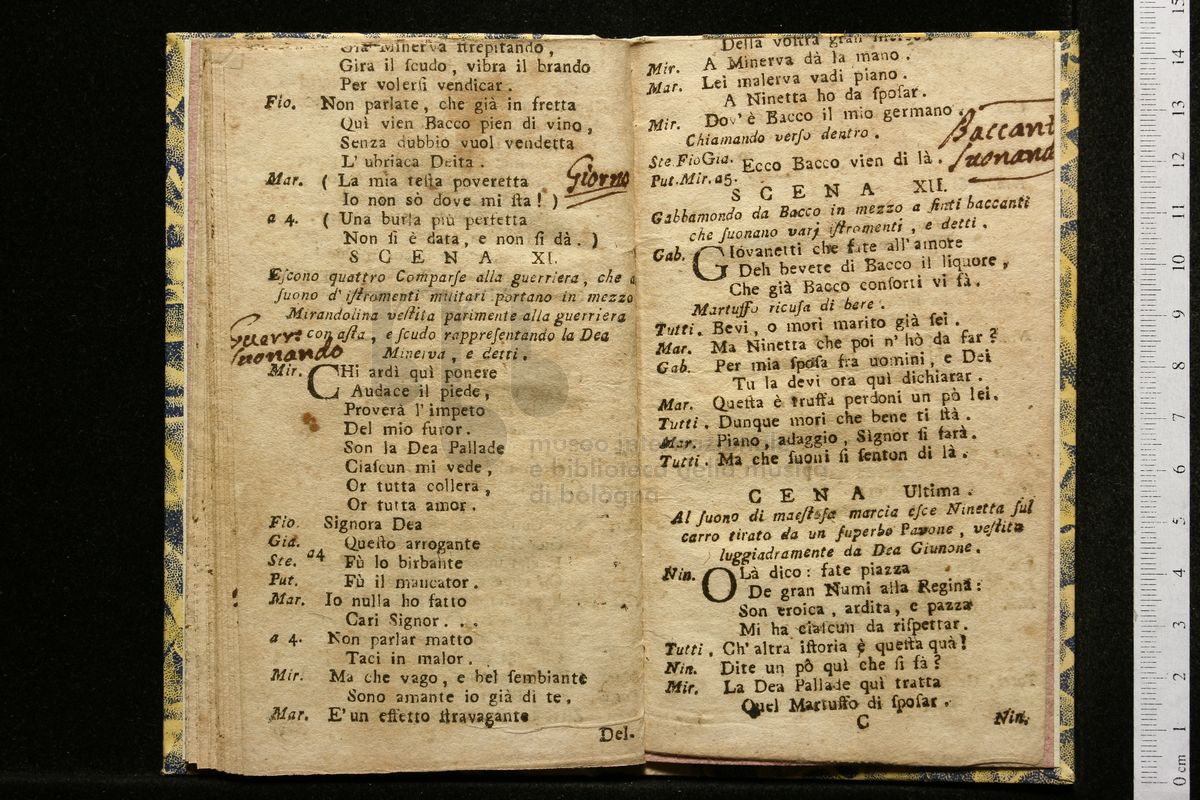 Già Minerva ſtrepitando,
Gira il ſcudo, vibra il brando
Per volerſi vendicar.
Fio. Non parlate, che già in fretta
Quì vien Bacco pien di vino,
Senza dubbio vuol vendetta
L' ubriaca Deita.
Mar. ( La mia teſta poveretta
Io non sò dove mi ſta! )
Giorno
a 4. ( Una burla più perfetta
Non ſi è data, e non ſi dà. )
SCENA XI.
Eſcono quattro Comparſe alla guerriera, che a
ſuono d' iſtromenti militari portano in mezzo
Mirandolina veſtita parimente alla guerriera
con aſta, e ſcudo rappreſentando la Dea
Minerva, e detti.
Guerri:
ſuonando
Mir. CHi ardì quì ponere
Audace il piede,
Proverà l' impeto
Del mio furor.
Son la Dea Pallade
Ciaſcun mi vede,
Or tutta collera,
Or tutta amor.
Fio. Signora Dea
Gia. Queſto arrogante
Ste. a4 Fù lo birbante
Put. Fù il mancator.
Mar. Io nulla ho fatto
Cari Signor...
a 4. Non parlar matto
Taci in malor.
Mir. Ma che vago, e bel ſembiante
Sono amante io già di te.
Mar. E' un effetto ſtravagante
Del-
Della voſtra gran
Mir. A Minerva dà la mano.
Mar. Lei malerva vadi piano.
A Ninetta ho da ſpoſar.
Mir. Dov' è Bacco il mio germano.
Chiamando verſo dentro.
Baccant
ſuonand
Ste. Fio Gia.
Put. Mir. a5. Ecco Bacco vien di là.
SCENA XII.
Gabbamondo da Bacco in mezzo a finti baccanti
che ſuonano varj iſtromenti, e detti.
Gab. GIovanetti che fate all' amore
Deh bevete di Bacco il liquore,
Che già Bacco conforti vi fà.
Martuffo ricuſa di bere.
Tutti. Bevi, o mori marito già ſei.
Mar. Ma Ninetta che poi n' hò da far?
Gab. Per mia ſpoſa fra uomini, e Dei
Tu la devi ora quì dichiarar.
Mar. Queſta è truffa perdoni un pò lei.
Tutti. Dunque mori che bene ti ſtà.
Mar. Piano, adaggio, Sìgnor ſi farà.
Tutti. Ma che ſuoni ſi ſenton di là.
CENA Ultima.
Al ſuono di maeſtoſa marcia eſce Ninetta ſul
carro tirato da un ſuperbo Pavone, veſtita
luggiadramente da Dea Giunone.
Nin. OLà dico: fate piazza
De gran Numi alla Regina:
Son eroica, ardita, e pazza
Mi ha ciaſcun da riſpettar.
Tutti. Ch' altra iſtoria è queſta quà!
Nin. Dite un pô quì che ſi fà?
Mir. La Dea Pallade quì tratta
Quel Martuffo di ſpoſar.
C
Nin.
museo internazionale
e biblioteca della musica
di bologna